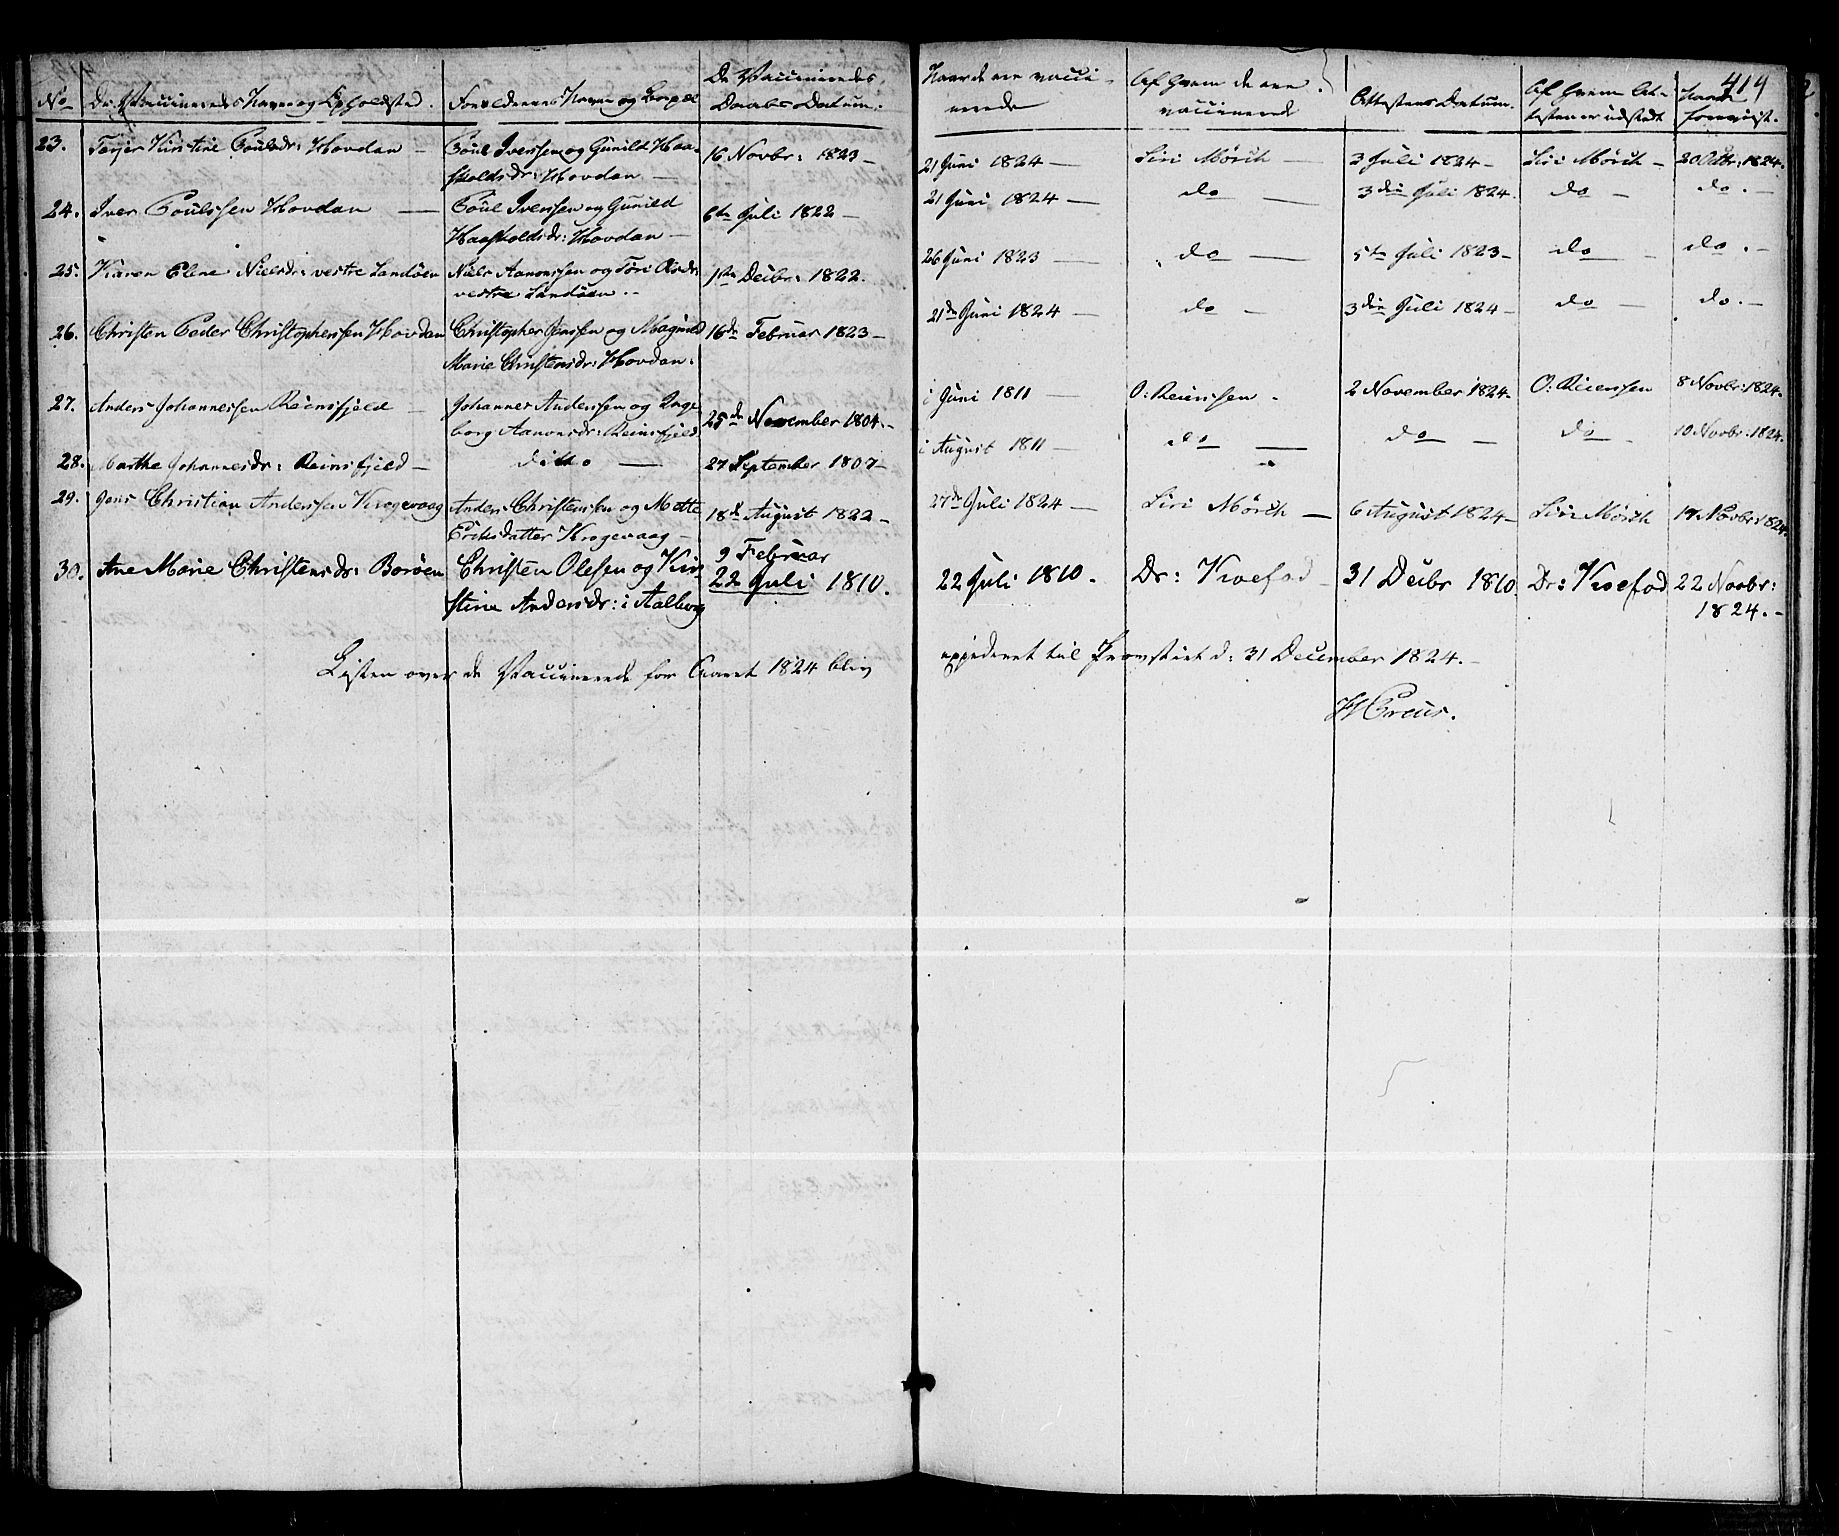 414
No
De Vaccineredes Navne og Opholdsted.
Forældrenes Navne og Bopæl
De Vaccineredes
Daabs-Datum.
Naar de ere vacci-
nerede
Af hvem de ere
vaccinerede
Attestens Datum.
Af hvem At-
testen er udstedt
Naar
forevist.
23. Kirstine Poulsdr: Hovdan — Poul Iverssen og Gunild Haa- 16 Novbr: 1823 — 21 Juni 1824 — Siri Mörch — 3 Juli 1824 — Siri Mörch — 20 Octbr: 1824.
skoldsdr: Hovdan —
24. Iver Poulssen Hovdan — Poul Iverssen og Gunild 6te Juli 1822 — 21 Juni 1824 — do — 3die Juli 1824. do — do. —
Haaskoldsdr: Hovdan —
25. Karen Elene Nielsdr: vestre Landöen Niels Aanonssen og Tóri 1ste Decbr: 1822. 26 Juni 1823 — do — 5te Juli 1823 — do — do. —
vestre Landöen. —
26. Christen Peder Christopherssen Hovdan Christopher Jenssen og Magnild 16de Februar 1823 — 21de Juni 1824 — do — 3die Juli 1824 — do — do. —
Marie Christensdr: Hovdan.
27. Anders Johannessen Reinsfjeld — Johannes Anderssen og Inge- 25de November 1804. — i Juni 1811 — O: Reierssen — 2 November 1824. O: Reierssen 8 Novbr: 1824.
borg Aanonsdr: Reinsfjeld.
28. Marthe Johannesdr: Reinsfjeld — ditto — 27 September 1807 — i August 1811 — do — do — do — 10 Novbr: 1824.
29. Jens Christian Anderssen Krogevaag Anders Christenssen og Mette 18de August 1822 — 27de Juli 1824 — Siri Mörch — 6 August 1824 — Siri Mörch 17 Novbr: 1824.
Eriksdatter Krogevaag —
30. Ane Marie Christensdr: Boröen Christen Olessen og Kir- 9 Februar
22 Juli 1810. 22 Juli 1810. Dr: Koefod — 31 Decbr 1810 Dr: Koefod 22 Novbr:
stine Andersdr: i Aalborg 1824. —
Listen over de Vaccinerede for Aaret 1824 blev expederet til Provstiet d: 31 December 1824. —